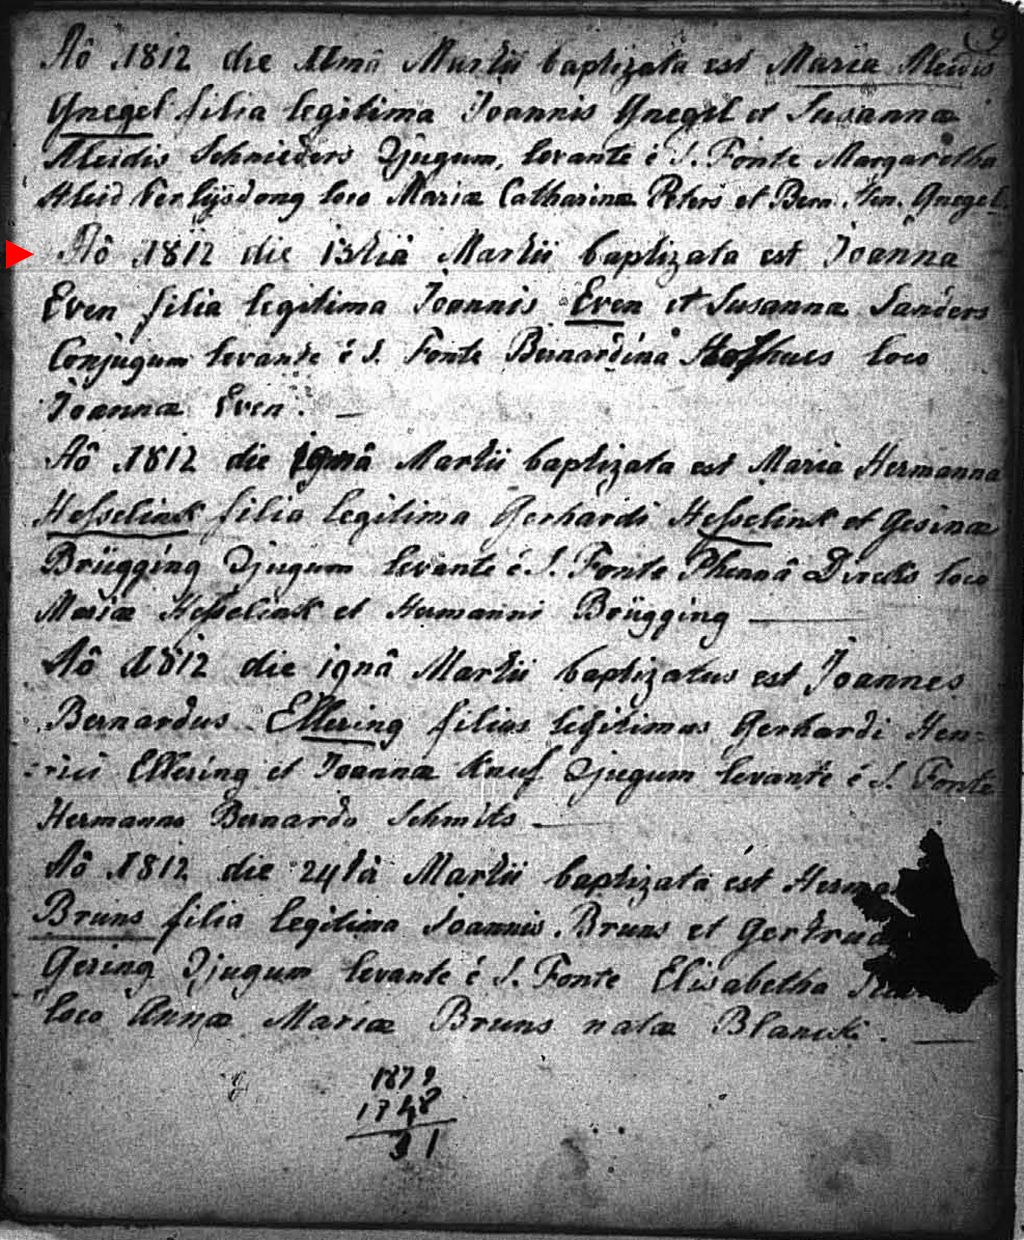 Aô 1812 die 11mâ Martii baptizata est Maria Aleidis
Gnegel filia legitima Joannis Gnegel et Susannæ
Aleidis Schnieders Conjugum, levante è S. Fonte Margaretha
Aleid loco Mariæ Catharinæ Peters et Bern. Hen. Gnegel.
Aô 1812 die 13tiâ Martii baptizata est Joanna
Even filia legitima Joannis Even et Susannæ Sanders
Conjugum levante è S. Fonte Bernardina loco
Joannæ Even.
Aô 1812 die Martii baptizata est Maria Hermanna
Hesselink filia legitima Gerhardi Hesselink et Gesinæ
Brügging Conjugum levante è S. Fonte Phennâ Dircks loco
Mariæ Hesselink et Hermanni Brügging
Aô 1812 die 19nâ Martii baptizatus est Joannes
Bernardus Ellering filius legitimus Gerhardi Hen=
=rici Ellering et Joannæ Knuf Conjugum levante è S. Fonte
Hermanno Bernardo Schmits
Aô 1812 die 24tâ Martii baptizata est
Bruns filia legitima Joannis Bruns et
Gesing Conjugum levante è S. Fonte Elisabetha
loco Annæ Mariæ Bruns natæ
1879
1748
31